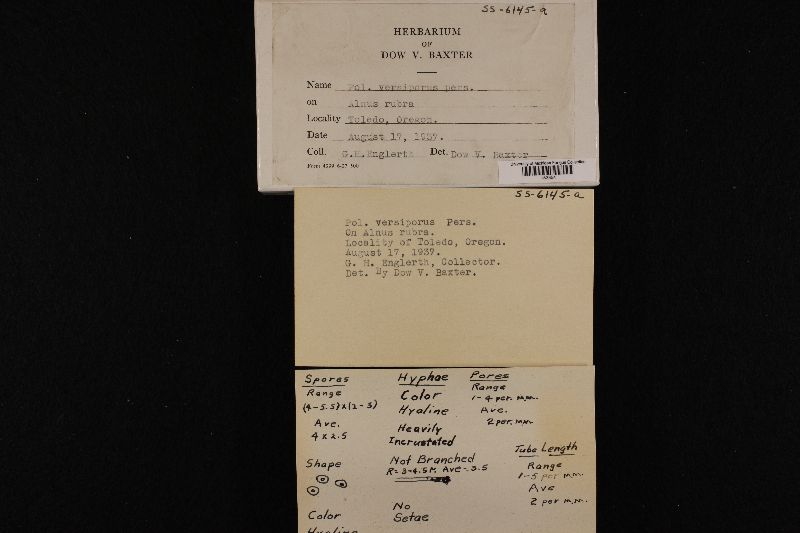 SS-6145-a
HERBARIUM
OF
DOW V. BAXTER
Name Pol. versiporus pers.
on Alnus rubra
Locality Toledo, Oregon.
Date August 17, 1937.
Coll. G.H.Englerth Det. Dow V. Baxter
University of Michigan Fungus Collection
SS-6145-a
Pol. versiporus Pers.
On Alnus rubra.
Locality of Toledo, Oregon.
August 17, 1937.
G. H. Englerth, Collector.
Det. By Dow V. Baxter.
Spores
Range
(4-5.5)x(2-3)
Ave.
4 x 2.5
Shape
Color
Hyaline
Hyphae
Color
Hyaline
Heavily
Incrustated
Not Branched
R=3-4.5M. Ave-3.5
No
Setae
Pores
Range
1-4 per. m.m.
Ave.
2 per. m.m.
Tube Length
Range
1-5 per m.m.
Ave
2 per m.m.